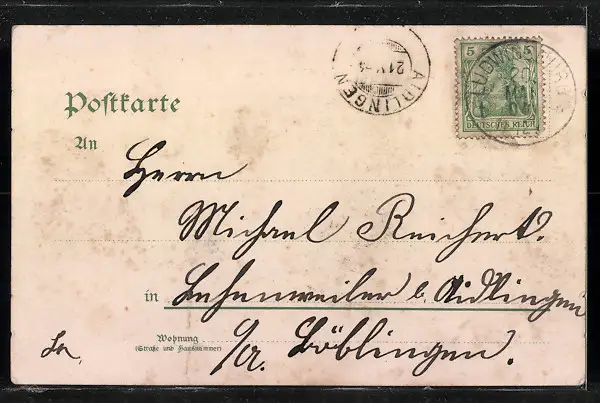 5 5
DEUTSCHES REICH
AIDLINGEN
21 V
LUDWIGSBURG
20 MAI
Postkarte
An
Herrn
Michael Reichert.
in Lehenweiler b. Aidlingen
Wohnung
(Straße und Hausnummer)
O/A. Böblingen.